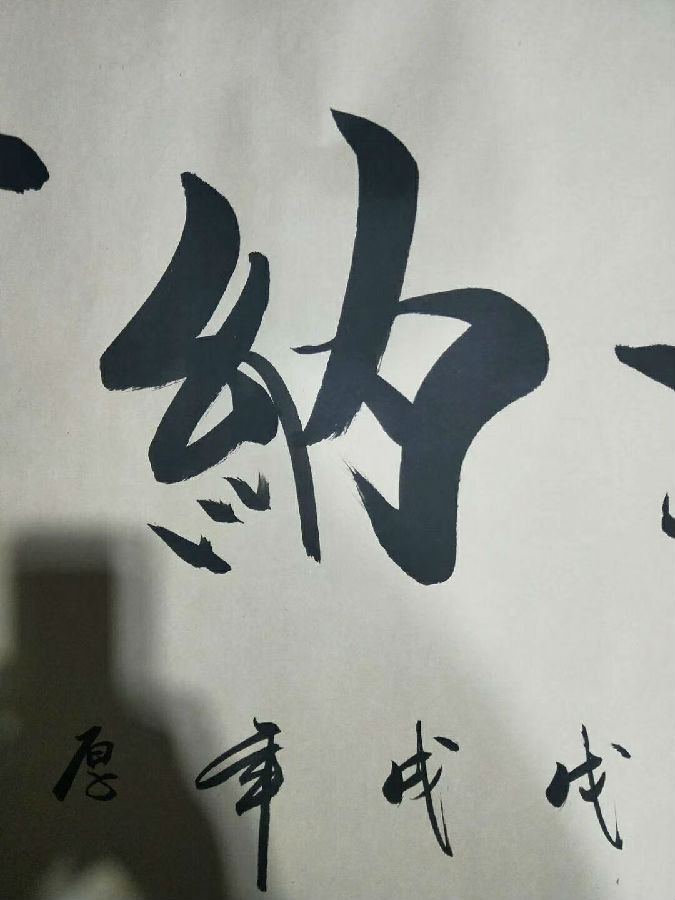 納
戊戌年厚